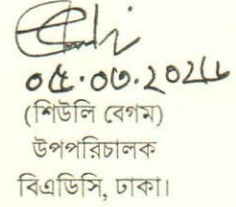 ০৫.০৩.২০২৮
(শিউলি বেগম)
উপপরিচালক
বিএডিসি, ঢাকা।